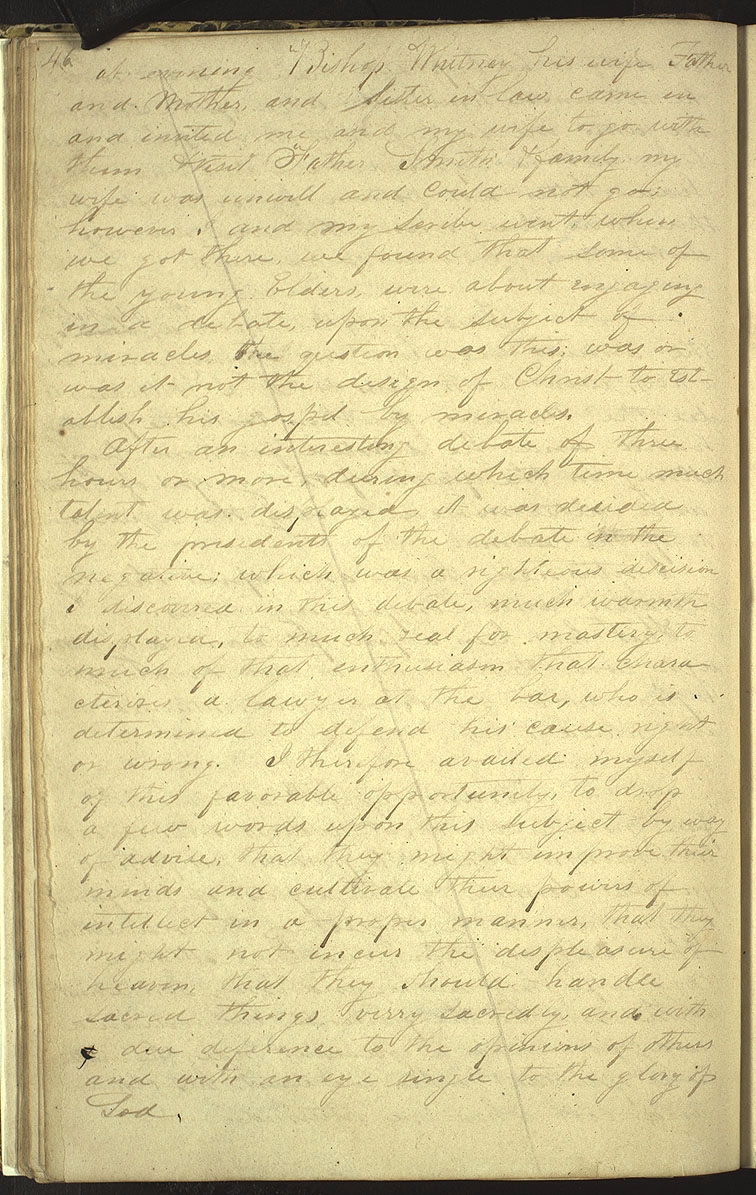 46
at evening Bishop Whitney his wife Father
and Mother, and Sister in law came in
and invited me and my wife to go with
them & visit Father Smith & family my
wife was unwell and could not go;
however i and my Scribe went, when
we got there, we found that some of
the young Elders, were about engaging
in a debate, upon the subject of
miracles the question was this; was or
was it not the design of Christ to est-
ablish his gospel by miracles.
After an interesting debate of three
hours or more, during which time much
talent was displayed, it was desided
by the presidents of the debate in the
negative; which was a righteous decision
i discovered in this debate, much warmth
displayed, to much zeal for mastery, to
much of that enthusiasm that chara
cterises a lawyer at the bar, who is
determined to defend his cause right
or wrong. I therefore availed myself
of this favorable opportunity, to drop
a few words upon this subject by way
of advise, that they might improve their
minds and cultivate their powers of
intellect in a proper manner, that they
might not incur the displeasure of
heaven, that they should handle
sacred things verry sacredly, and with
due deference to the opinions of others
and with an eye single to the glory of
God.